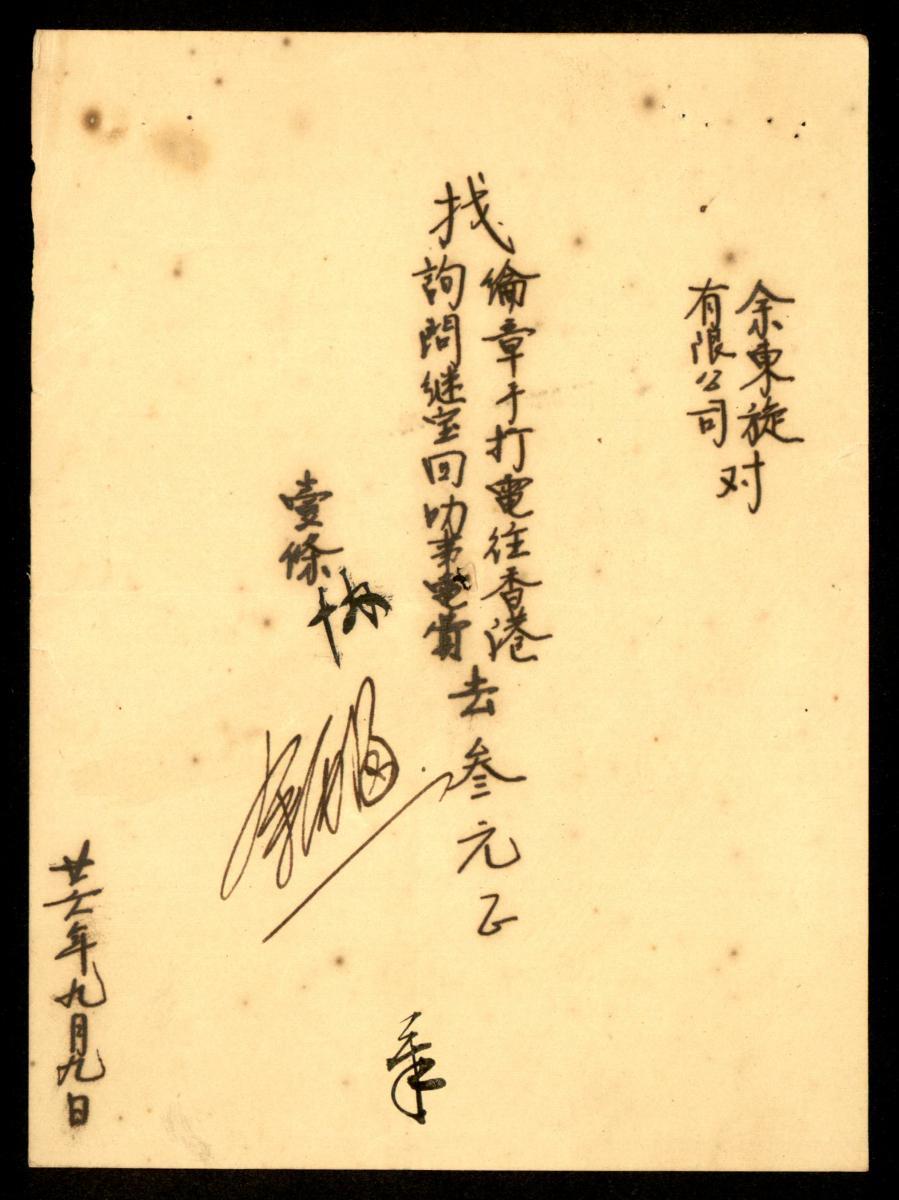 余東旋
有限公司
对
找
倫章手打電往香港
詢問继室回叻事電賞
去叁元正
壹條
廿六年九月九日